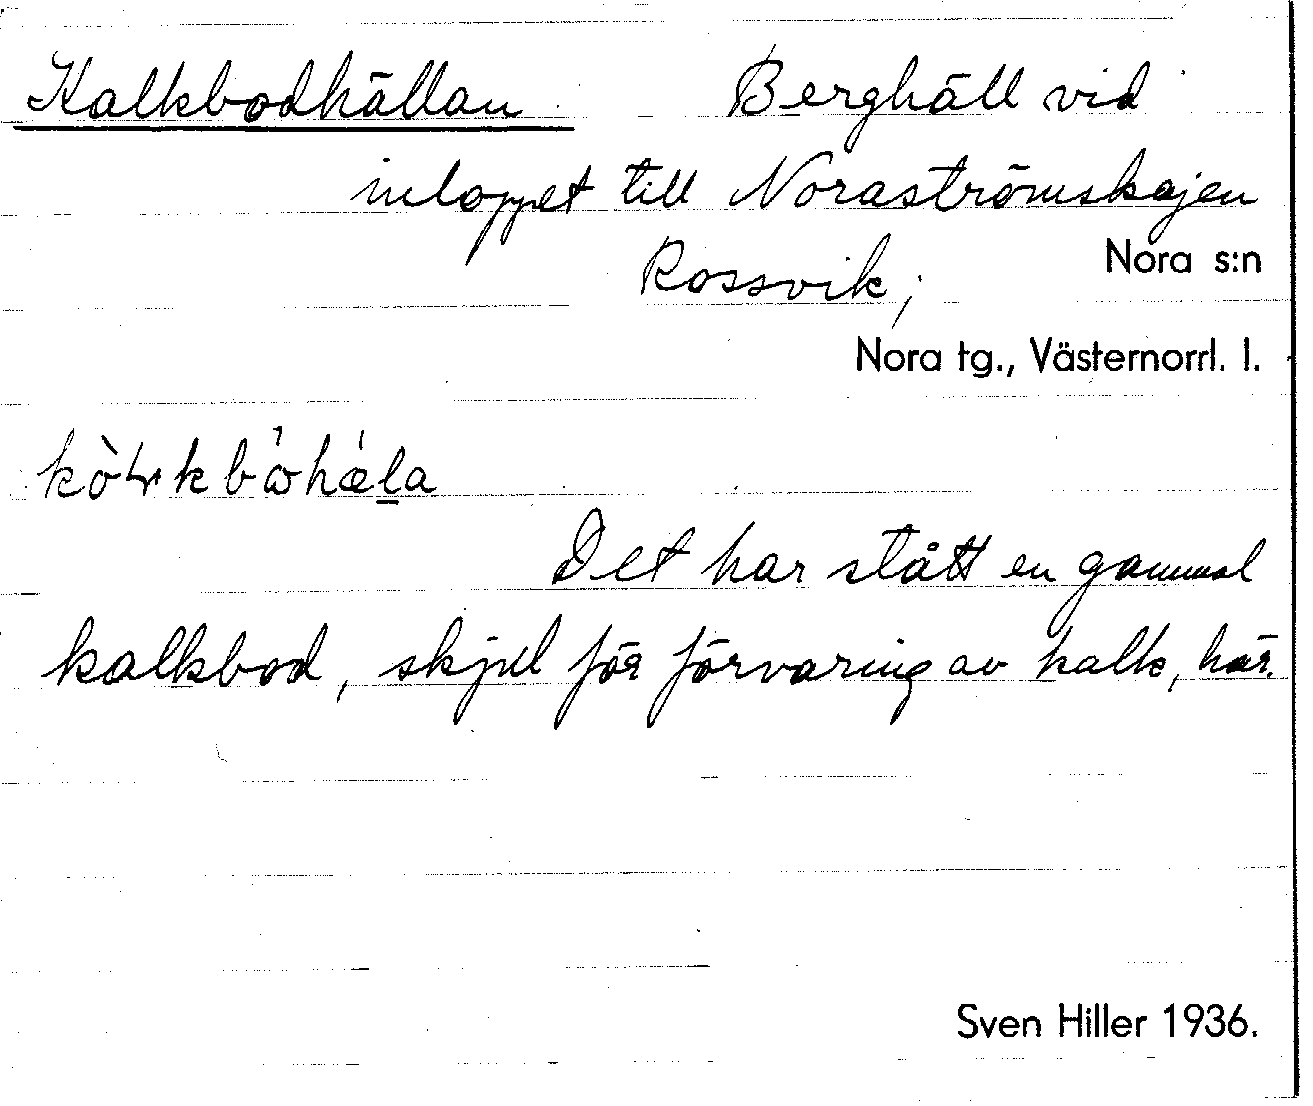 Kalkbodhällan Berghäll vid
inloppet till Noraströmskajen
Rossvik; Nora s:n
Nora tg., Västernorrl. l.
Det har stått en gammal
kalkbod, skjul för förvaring av kalk, här.
Sven Hiller 1936.